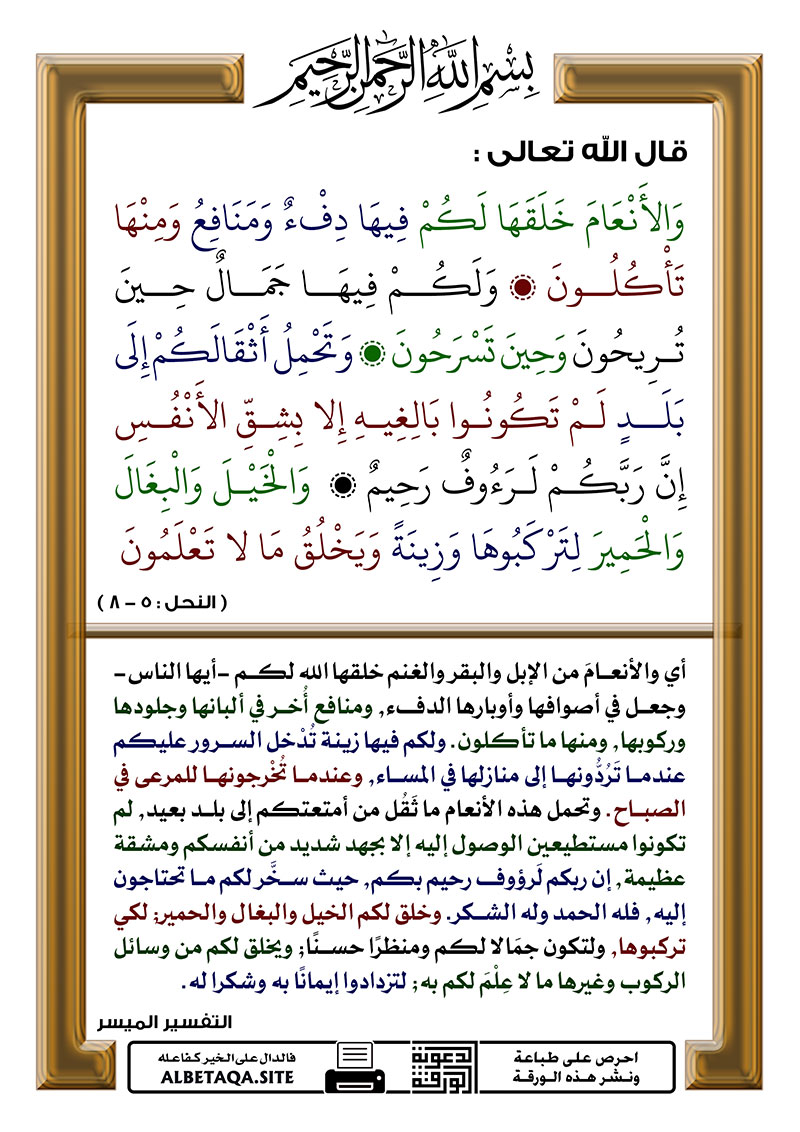 بِسْمِ اللَّهِ الرَّحْمَنِ الرَّحِيمِ
قال الله تعالى :
وَالأَنْعَامَ خَلَقَهَا لَكُمْ فِيهَا دِفْءٌ وَمَنَافِعُ وَمِنْهَا
تَأْكُلُونَ ۞ وَلَكُمْ فِيهَا جَمَالٌ حِينَ
تُرِيحُونَ وَحِينَ تَسْرَحُونَ ۞ وَتَحْمِلُ أَثْقَالَكُمْ إِلَى
بَلَدٍ لَمْ تَكُونُوا بَالِغِيهِ إِلا بِشِقِّ الأَنْفُسِ
إِنَّ رَبَّكُمْ لَرَءُوفٌ رَحِيمٌ ۞ وَالْخَيْلَ وَالْبِغَالَ
وَالْحَمِيرَ لِتَرْكَبُوهَا وَزِينَةً وَيَخْلُقُ مَا لا تَعْلَمُونَ
( النحل : ٥ - ٨ )
أي والأنعامَ من الإبل والبقر والغنم خلقها الله لكم -أيها الناس-
وجعل في أصوافها وأوبارها الدفء, ومنافع أُخر في ألبانها وجلودها
وركوبها, ومنها ما تأكلون. ولكم فيها زينة تُدْخل السرور عليكم
عندما تَرُدُّونها إلى منازلها في المساء, وعندما تُخْرجونها للمرعى في
الصباح. وتحمل هذه الأنعام ما ثَقُل من أمتعتكم إلى بلد بعيد, لم
تكونوا مستطيعين الوصول إليه إلا بجهد شديد من أنفسكم ومشقة
عظيمة, إن ربكم لَرؤوف رحيم بكم, حيث سخَّر لكم ما تحتاجون
إليه, فله الحمد وله الشكر. وخلق لكم الخيل والبغال والحمير; لكي
تركبوها, ولتكون جمَالا لكم ومنظرًا حسنًا; ويخلق لكم من وسائل
الركوب وغيرها ما لا عِلْمَ لكم به; لتزدادوا إيمانًا به وشكرا له.
التفسير الميسر
احرص على طباعة
ونشر هذه الورقة
الدعوية
الورقة
فالدال على الخير كفاعله
ALBETAQA.SITE